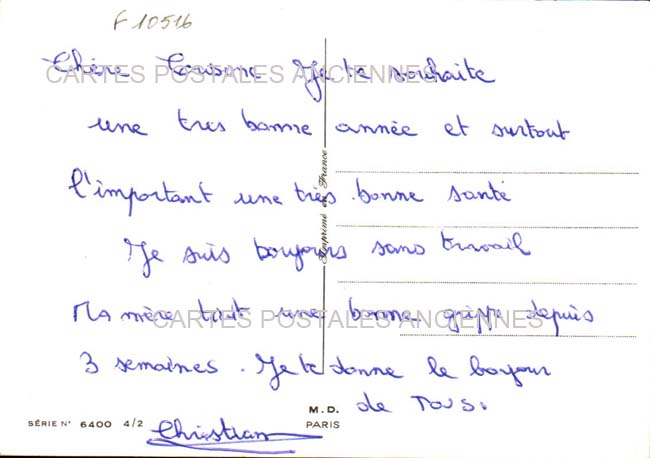 F 10516
Chère Je te souhaite
CARTES POSTALES ANCIENNES
une tres bonne année et surtout
l'important une très bonne santé
Je suis toujours sans travail
Imprimé en France
Ma mère une bonne grippe depuis
CARTES POSTALES ANCIENNES
3 semaines. Je te donne le bonjour
de TOUS.
SÉRIE N° 6400 4/2
M. D.
PARIS
Christian